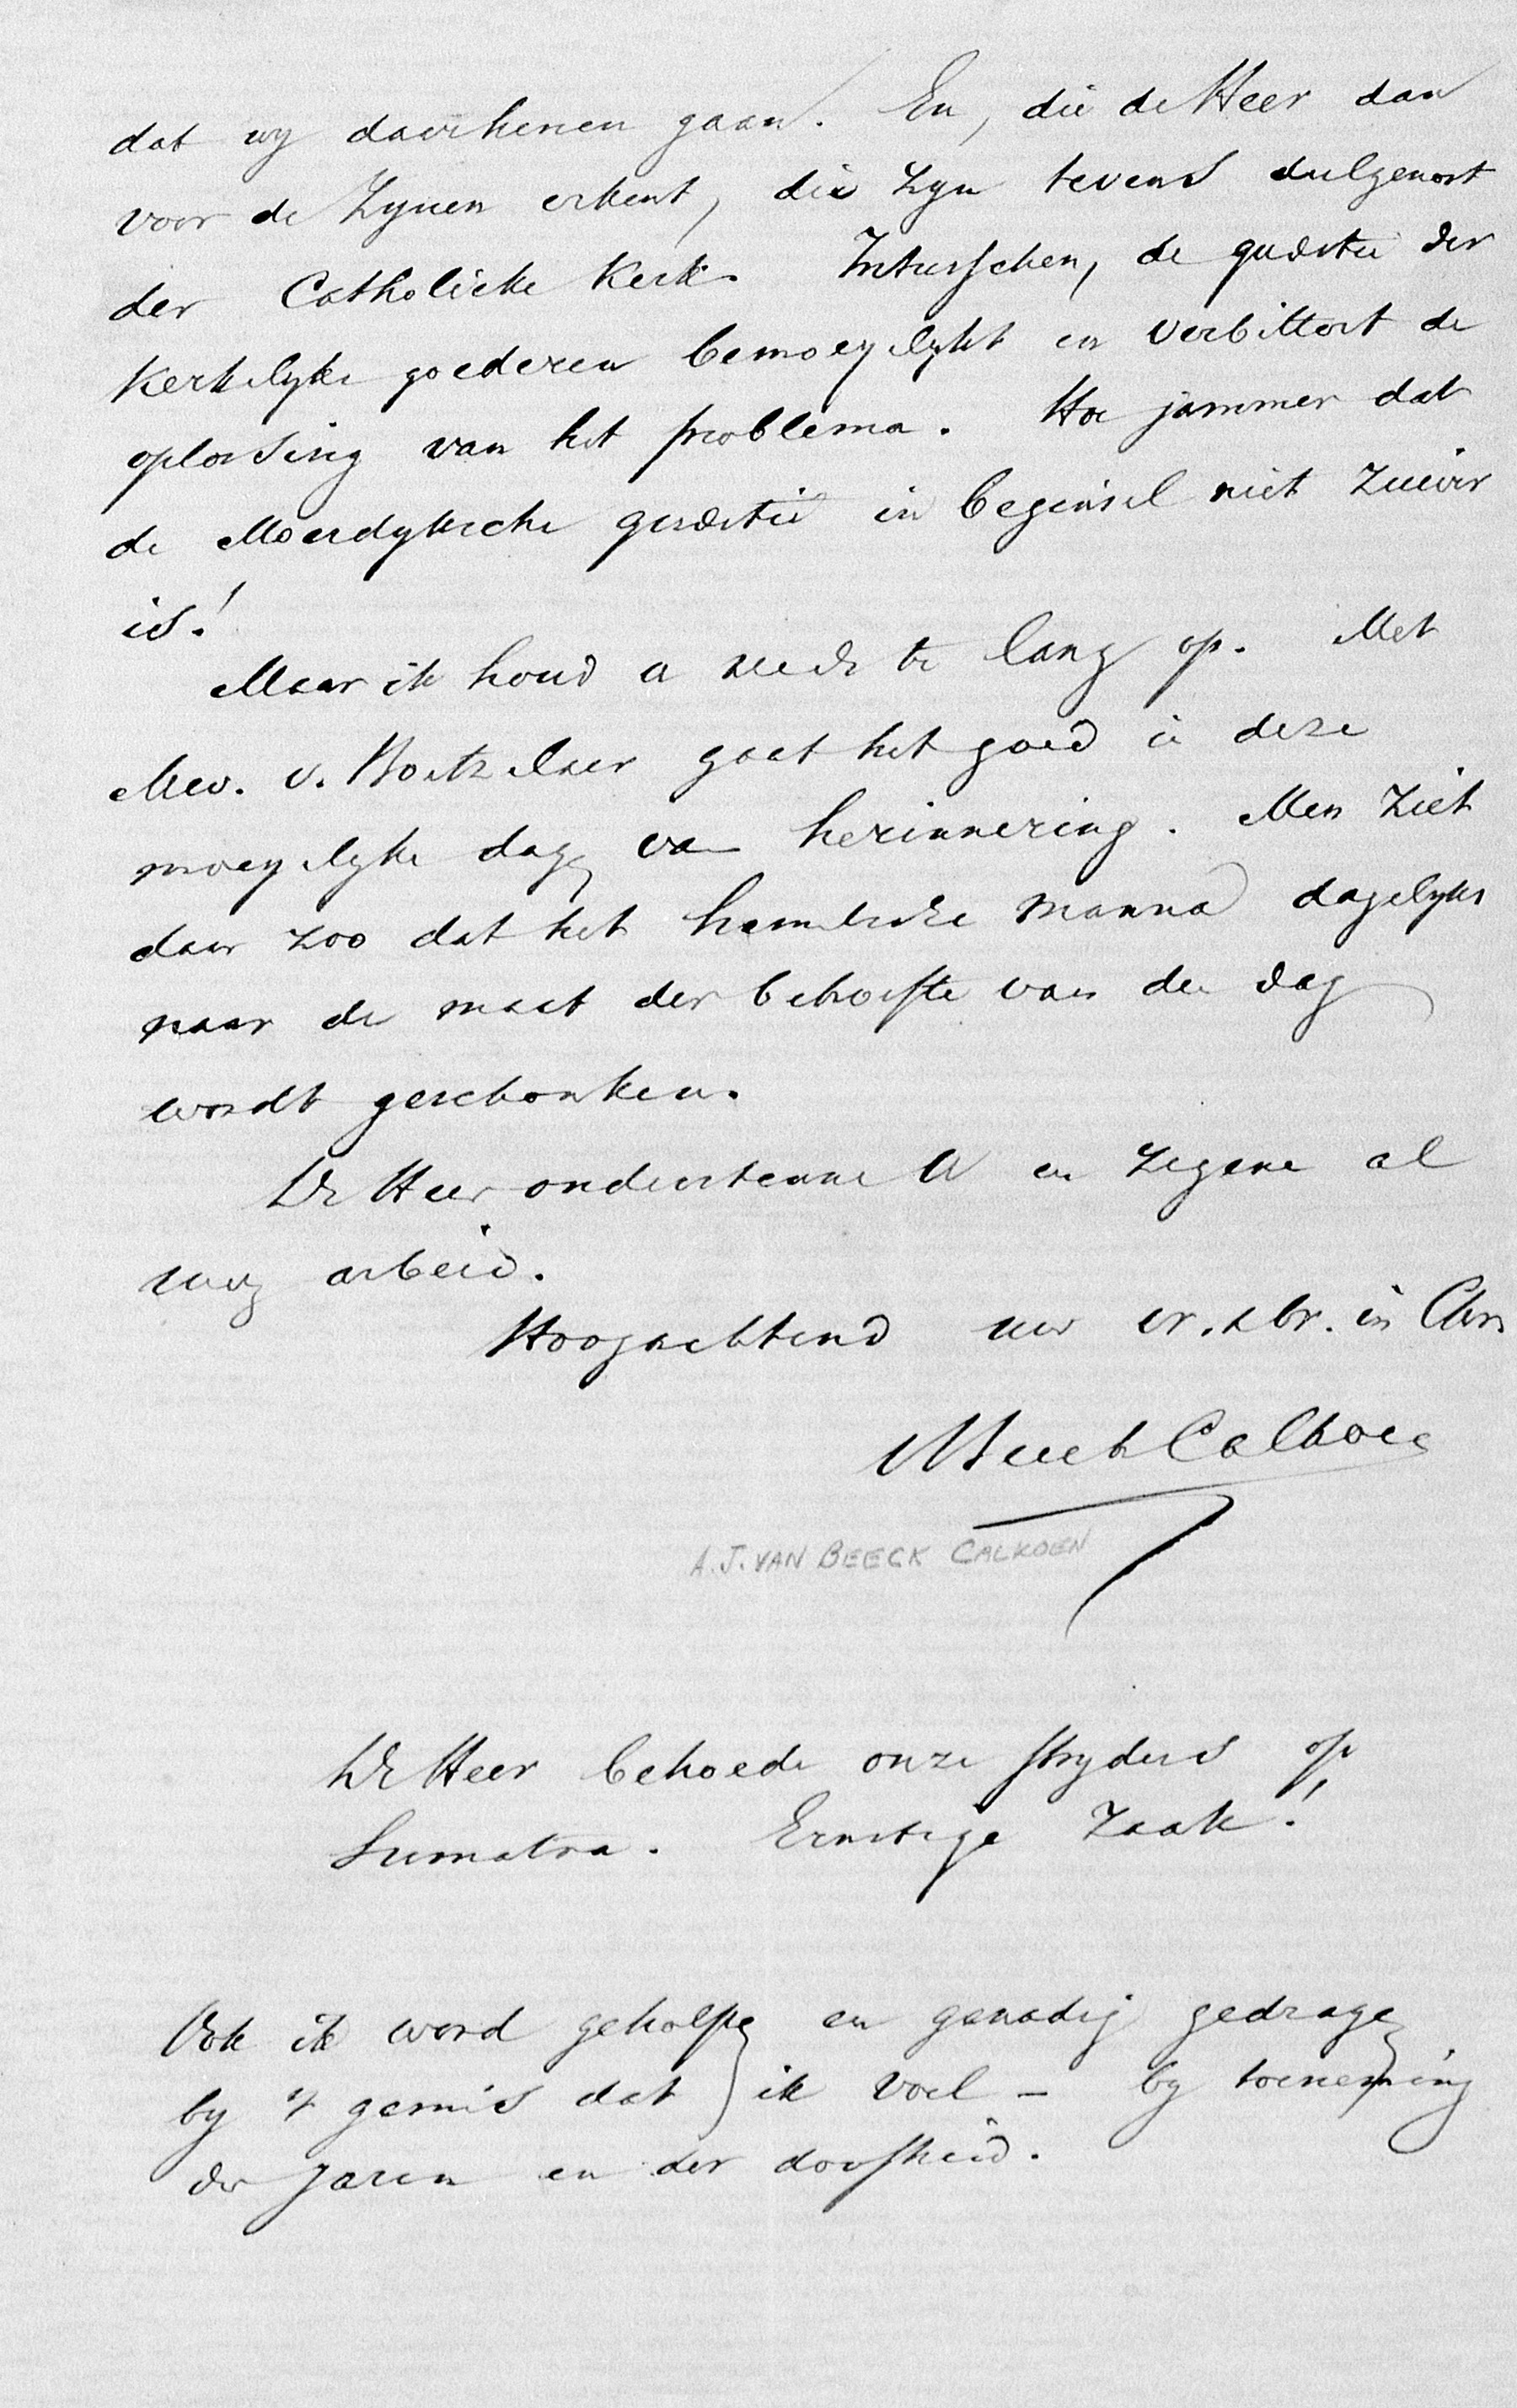 dat wy daarhenen gaan. En, die de Heer dan
voor de Zynen erkent, die zyn tevens deelgenoot
der Catholieke Kerk. Intusschen, de quaestie der
Kerkelyke goederen bemoeyelykt en verbittert de
oplossing van het problema. Hoe jammer dat
de Moerdyksche quaestie in beginsel niet zuiver
is!
Maar ik houd u reeds te lang op. Met
Mev. v. Boetzelaer gaat het goed in deze
moeyelyke dagen van herinnering. Men ziet
daar zoo dat het hemelsche manna dagelyks
naar de maat der behoefte van den dag
wordt geschonken.
De Heer ondersteune U en zegene al
uwen arbeid.
Hoogachtend uw vr. & br. in Chrs
v Beeck Calkoen
A.J. VAN BEECK CALKOEN
De Heer behoede onze stryders op
Sumatra. Ernstige zaak!
Ook ik word geholpen en genadig gedragen
by 't gemis dat ik voel – by toeneming
der jaren en der doofheid.